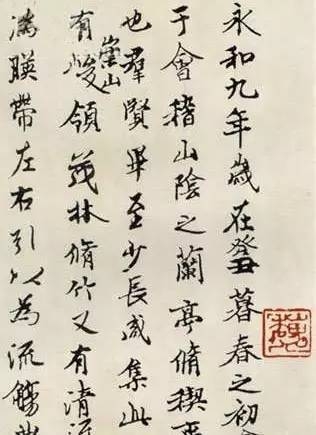 永和九年歲在癸丑暮春之初
于會稽山陰之蘭亭脩禊事
也羣賢畢至少長咸集此
有崇山峻領茂林脩竹又有清流
湍暎帶左右引以為流觴曲